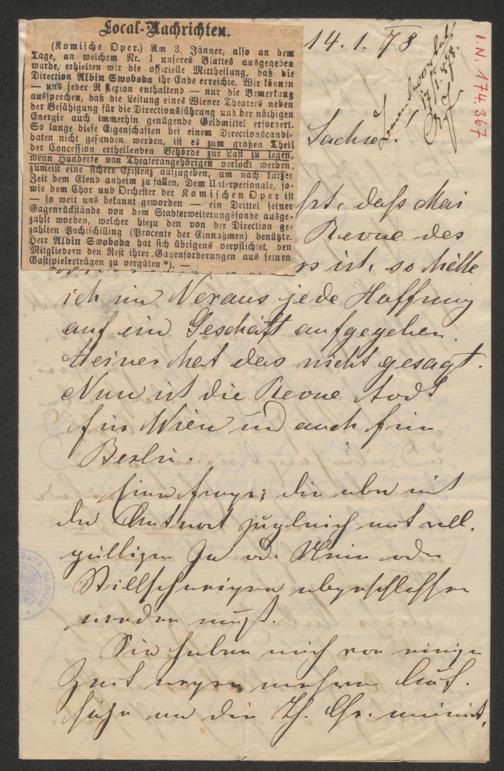 Local-Nachrichten.
(Komische Oper.) Am 3. Jänner, also an dem
Tage, an welchem Nr. 1 unseres Blattes ausgegeben
wurde, erhielten wir die officielle Mittheilung, daß die
Direction Albin Swoboda ihr Ende erreichte. Wir können
— uns jeder Reflexion enthaltend — nur die Bemerkung
aussprechen, daß die Leitung eines Wiener Theaters neben
der Befähigung für die Directionsführung und der nöthigen
Energie auch immerhin genügende Geldmittel erfordert.
So lange diese Eigenschaften bei einem Directionscandi-
daten nicht gefunden werden, ist es zum großen Theil
der Concession ertheilenden Behörde zur Last zu legen,
wenn Hunderte von Theaterangehörigen verlockt werden,
zumeist eine sichere Existenz aufzugeben, um nach kurzer
Zeit dem Elend anheim zu fallen. Dem Unterpersonale, so-
wie dem Chor und Orchester der Komischen Oper ist
— so weit uns bekannt geworden — ein Drittel seiner
Gagenrückstände von dem Stadterweiterungsfonde ausge-
zahlt worden, welcher hiezu den von der Direction ge-
zahlten Pachtschilling (Procente der Einnahmen) benützte.
Herr Albin Swoboda hat sich übrigens verpflichtet, den
Mitgliedern den Rest ihrer Gagenforderungen aus seinen
Gastspielerträgen zu vergüten*). —
14.1.78
I.N. 174.367
17/1.88.
daß
Revue des
ist, so hätte
ich im Voraus jede Hoffnung
auf ein Geschäft aufgegeben.
Heiner hat das nicht gesagt.
Nun ist die Revue todt
für Wien und auch für
Berlin.
Eine Frage; die aber mit
der Antwort zugleich mit voll-
gültigem Ja od. Nein oder
Stillschweigen
werden muß.
Sie haben mich vor einiger
Zeit wegen mehren Auf-
sätze an die